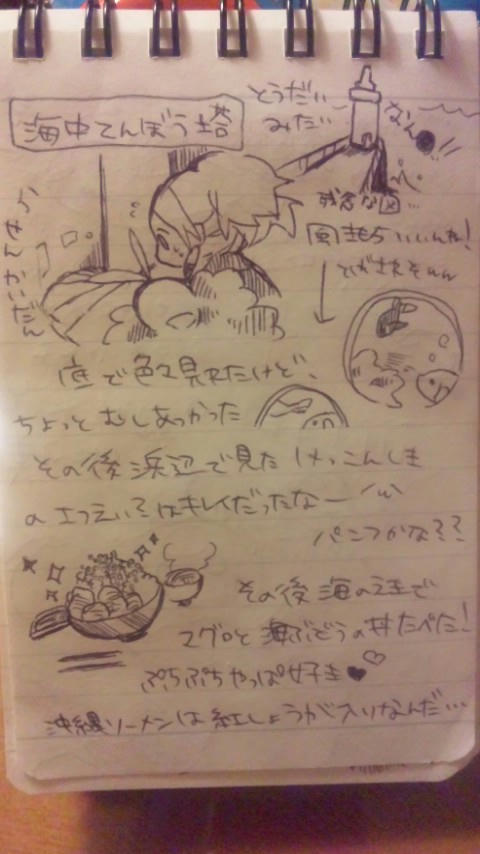 海中てんぼう塔
とうだい
みたい
なん●!!
らせんかいだん
残念な図…
風きもちいいんだ!
とばされそw
底で色々見れたけど、
ちょっとむしあつかった
その後浜辺で見たけっこんしき
のさつえい?はキレイだったなー
パンフかな??
その後海の王で
マグロと海ぶどうの丼たべた!
ぷちぷちやっぱ好き♥♡
沖縄ソーメンは紅しょうが入りなんだ…